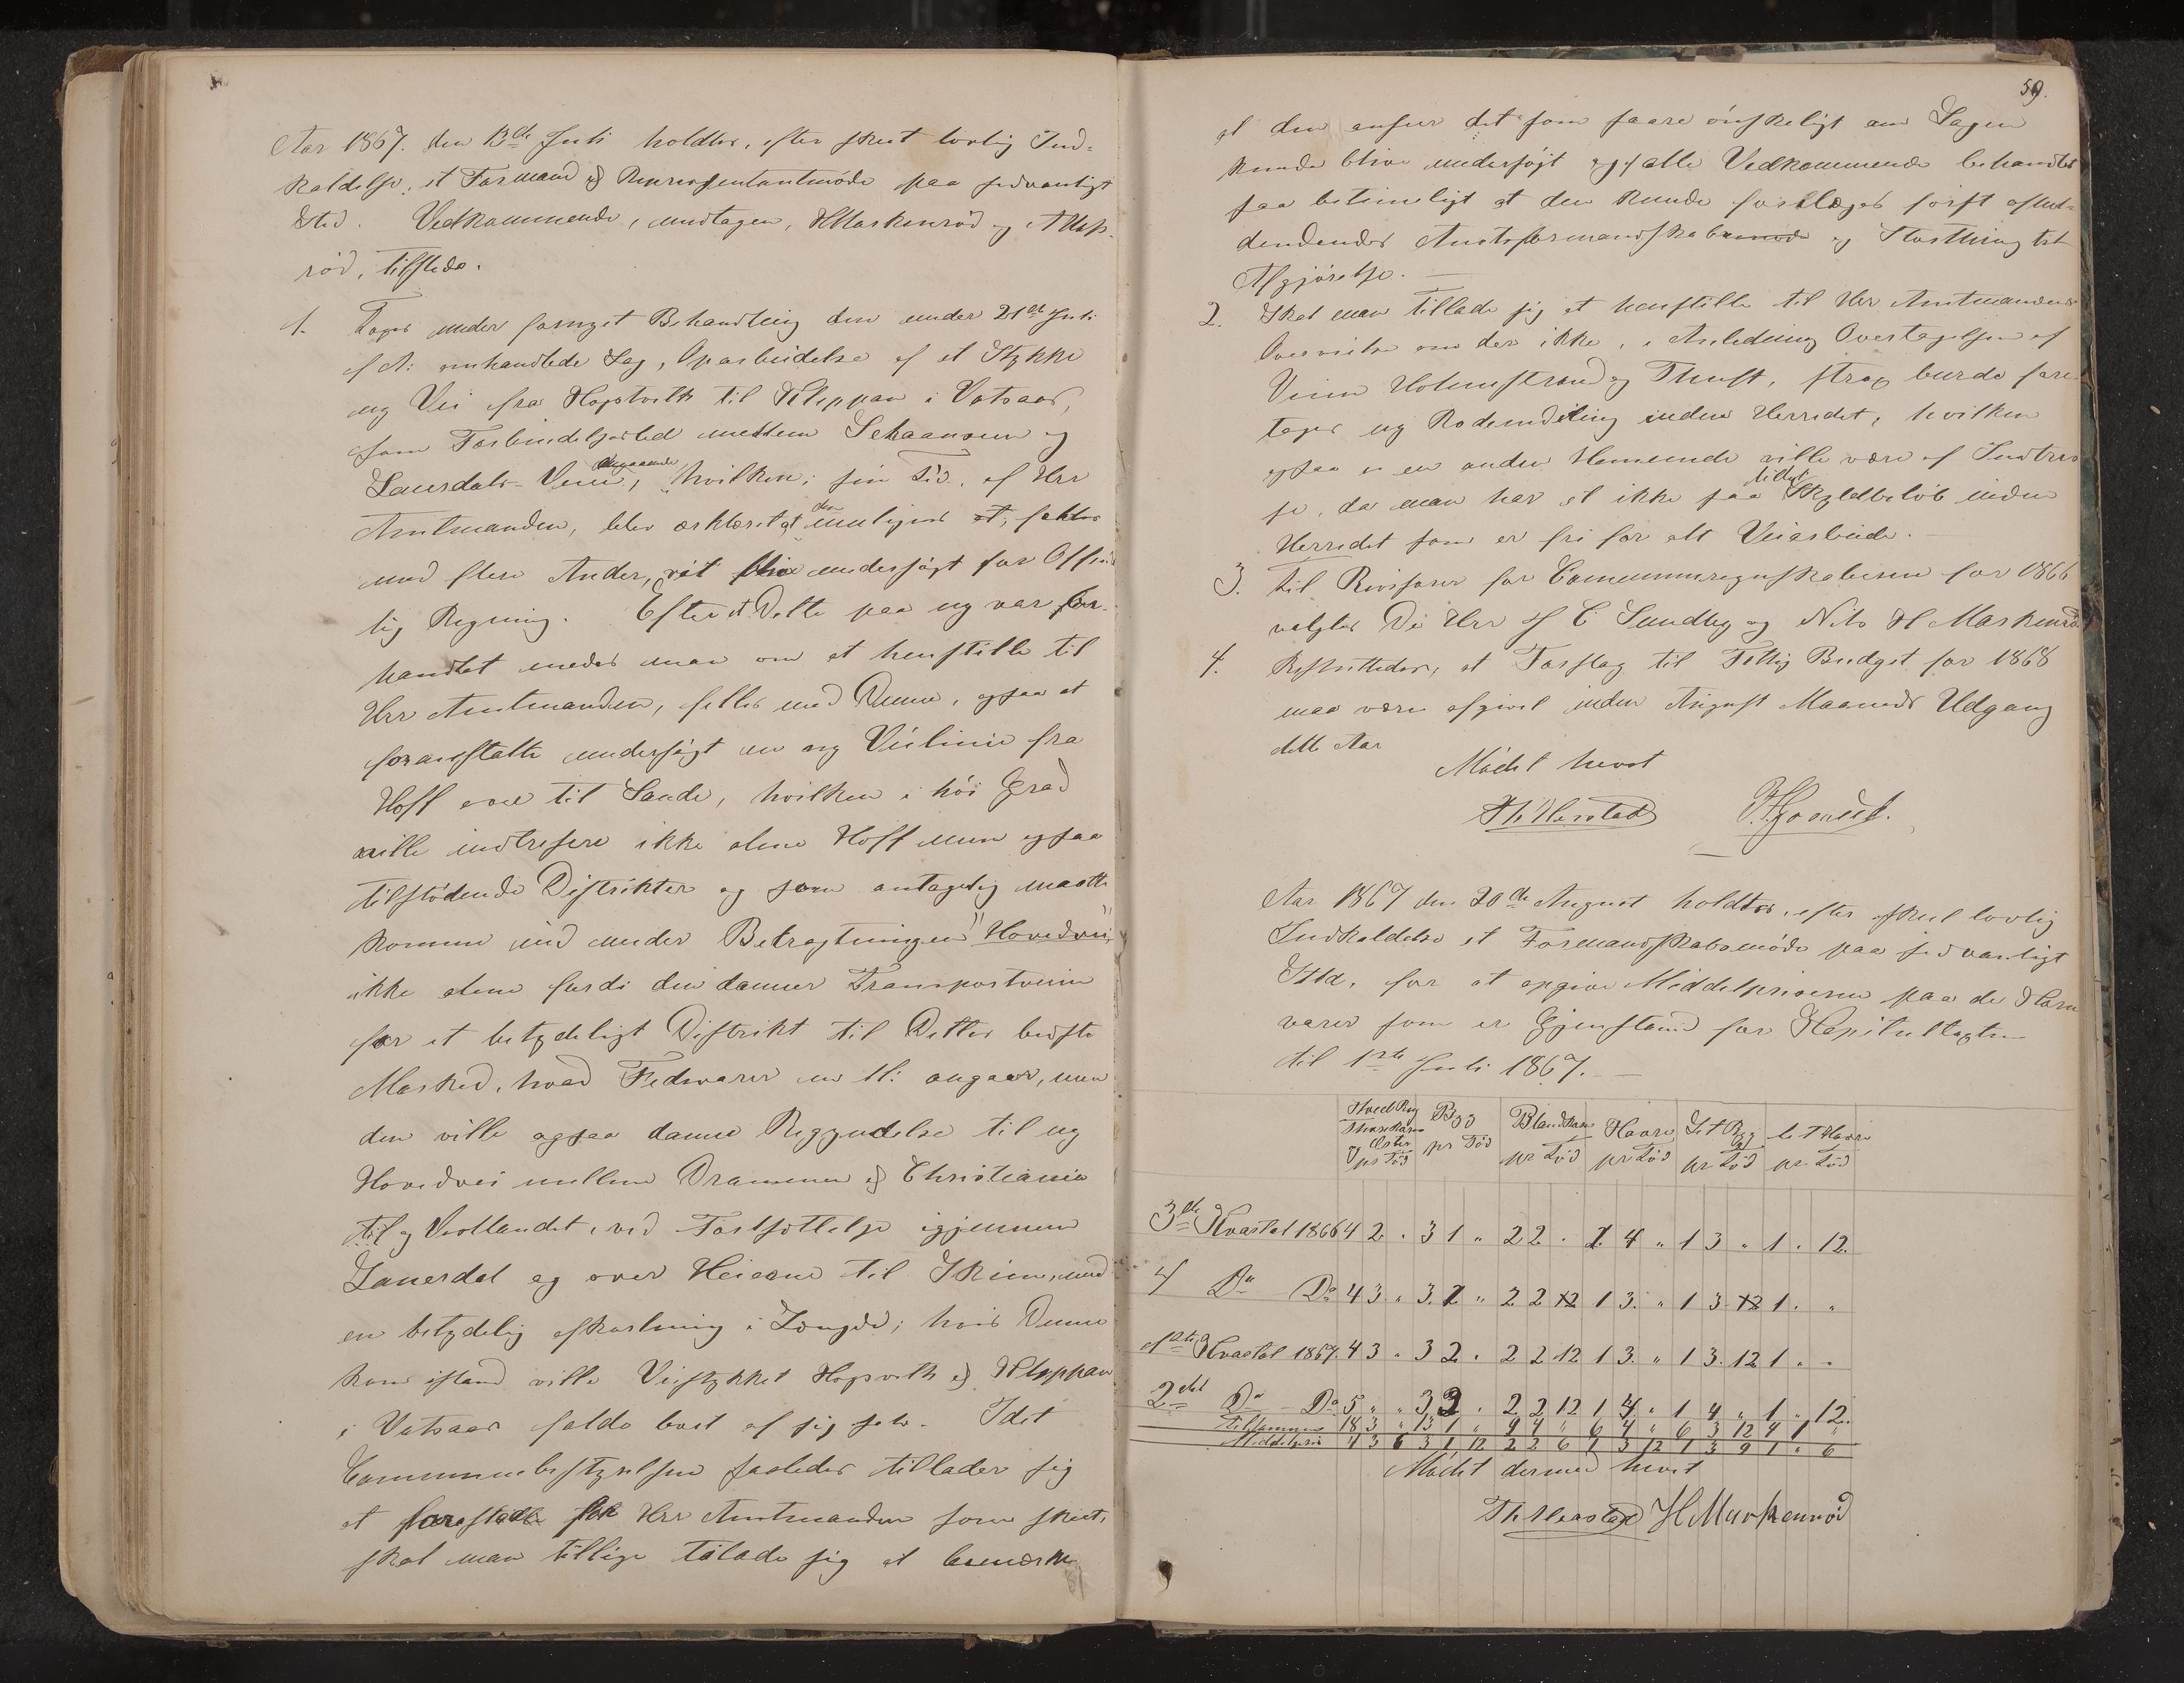 Aar 1867. den 13de Juli holdtes, efter skeet lovlig Ind-
kaldelse, et Formand og Representantmöde paa sedvanligt
Sted. Vedkommende, undtagen, H Markenröd og
röd, tilstede.
1. Toges under fornyet Behandling den under 21de Juli
f A: omhandlede Sag, Oparbeidelse af et Stykke
ny Vei fra Hopvelt til Kleppan i Vatsaas,
som Forbindelsesled mellem Sehaansen og
Lauerdals-Veien, angaaende hvilken, i sin Tid, af Herr
Amtmanden, blev erklæret at den muligens
med flere Andre, at blive undersögt for Offent
lig Regning. Efterat Dette paa ny var for-
handlet enedes man om at henstille til
Herr Amtmanden, selles med Denne, ogsaa at
foranstalte undersögt en ny Veilinie fra
Hoff over til Sande, hvilken i höi Grad
ville indtresere ikke alene Hoff men ogsaa
tilstödende Distrikter og som antagelig maatte
komme ind under Betragtningen "Hovedvei",
ikke alene fordi den danner Transportveien
for et betydeligt Distrikt til Dettes bedste
Marked, hvad Fedevarer m. M: angaar, men
den ville ogsaa danne Begyndelse til ny
Hovedvei mellem Drammen og Christiania
til og Vestlandet, ved Fortsættelse igjennem
Lauerdal og over Heierne til Skien, med
en betydelig afkortning i Længde; hvis Denne
kom istand ville Veistykket Hopvelt og Kleppan
i Vatsaas falde bort af sig selv. Idet
Communebestyrelsen saaledes tillader sig
at forestille for Herr Amtmanden som skeet,
skal man tillige tilade sig at bemærke
59.
at den anseer det som saare önskeligt om Sagen
kunde blive undersögt og af alle Vedkommende behandlet
saa betimeligt at den kunde forelægges först afhol-
dendes Amtsformandskab og Storthing til
Afgjörelse.
2. Skal man tillade sig at henstille til Herr Amtmandens
Overveielse om der ikke, i Anledning Overtagelsen af
Veien Holmestrand og Thuft, strax burde fore-
tages ny Rodeinddeling inden Herredet, hvilken
ogsaa i en anden Henseende ville være af Intres
se, da man har et ikke saa lidet Skyldbelöb inden
Herredet som er fri for alt Veiarbeide.
3. Til Revisorer for Communeregnskaberne for 1866
valgtes De Herr H C Sundby og Nils H Markenröd
4. Besluttedes, at Forslag til Fattig Budget for 1868
maa være afgivet inden August Maaneds Udgang
dette Aar
Mödet hævet
Th Herstad
Aar 1867 den 20de August holdtes, efter skeet lovlig
Indkaldelse et Formandskabsmöde paa sedvanligt
Sted, for at opgive Middelpriserne paa de Korn
varer som er Gjenstand for Kapitultaxten
til 1ste Juli 1867.
Hved Rug
og Erter
pr Töd Byg
pr Töd Blandkorn
pr Töd Havre
pr Töd Let Byg
pr Töd let Havre
pr. Töd
3die Kvartal 1866 4 2 . 3 1 " 2 2 . 1 4 " 1 3 " 1 . 12.
4 Do Do 4 3 " 3. 2 " 2 2 12 1 3. " 1 3. 12 1. "
1ste Kvartal 1867. 4 3 " 3 2 . 2 2 12 1 3. " 1 3. 12 1 " "
2det Do Do 5 " " 3 2 . 2 2 12 1 4 " 1 4 " 1 " 12.
Tilsammen 18 3 " 13 1 " 9 4 " 6 4 " 6 3 12 4 1 "
Middelpris 4 3 6 3 1 12 2 2 6 1 3 12 1 3 9 1 " 6
Mödet dermed hævet
Th Herstad H Markenröd